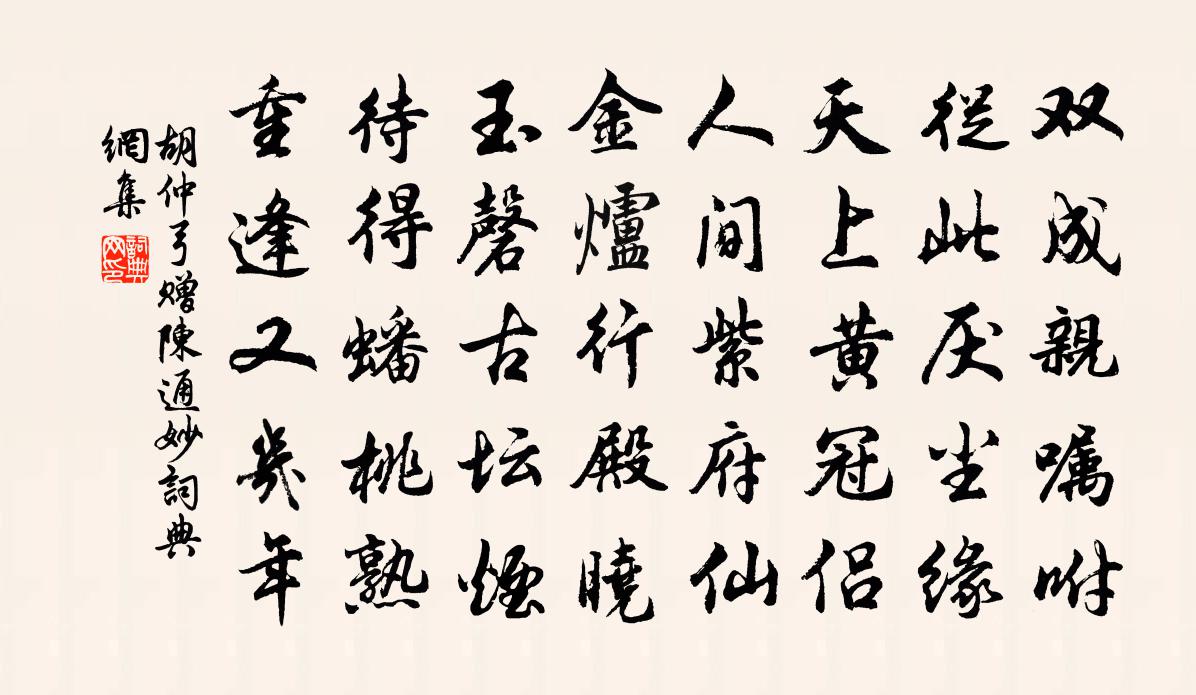 双成親嘱咐
從此厌尘缘
天上黄冠侣
人间紫府仙
金爐行殿曉
玉磬古坛煙
待得蟠桃熟
重逢又幾年
胡仲弓贈陳通妙詞典
網集
詞典
网印